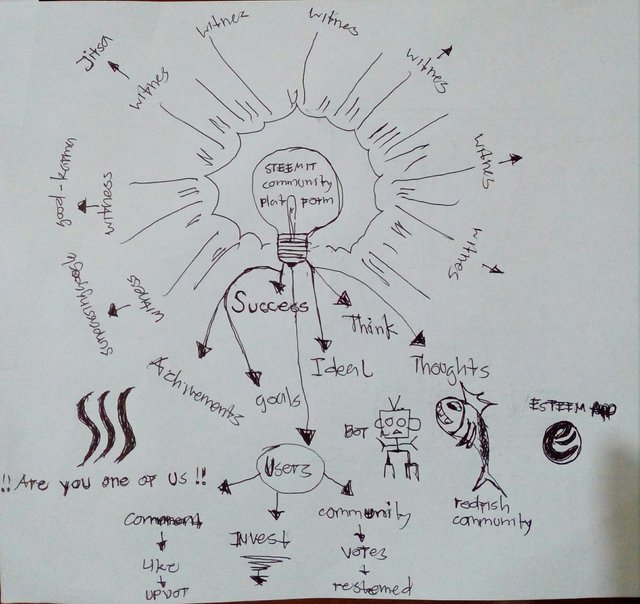 witnez
witnes
witnes
Jitsa
witnes
witnes
good-karma
witness
witnes
witness
STEEMIT
community
platform
Success
Think
Ideal
Thoughts
Achirements
goals
ESTEEM APP
BOT
Users
redfish
community
!! Are you one of us !!
Comment
Like
UPVOT
INVest
community
votes
resteemed